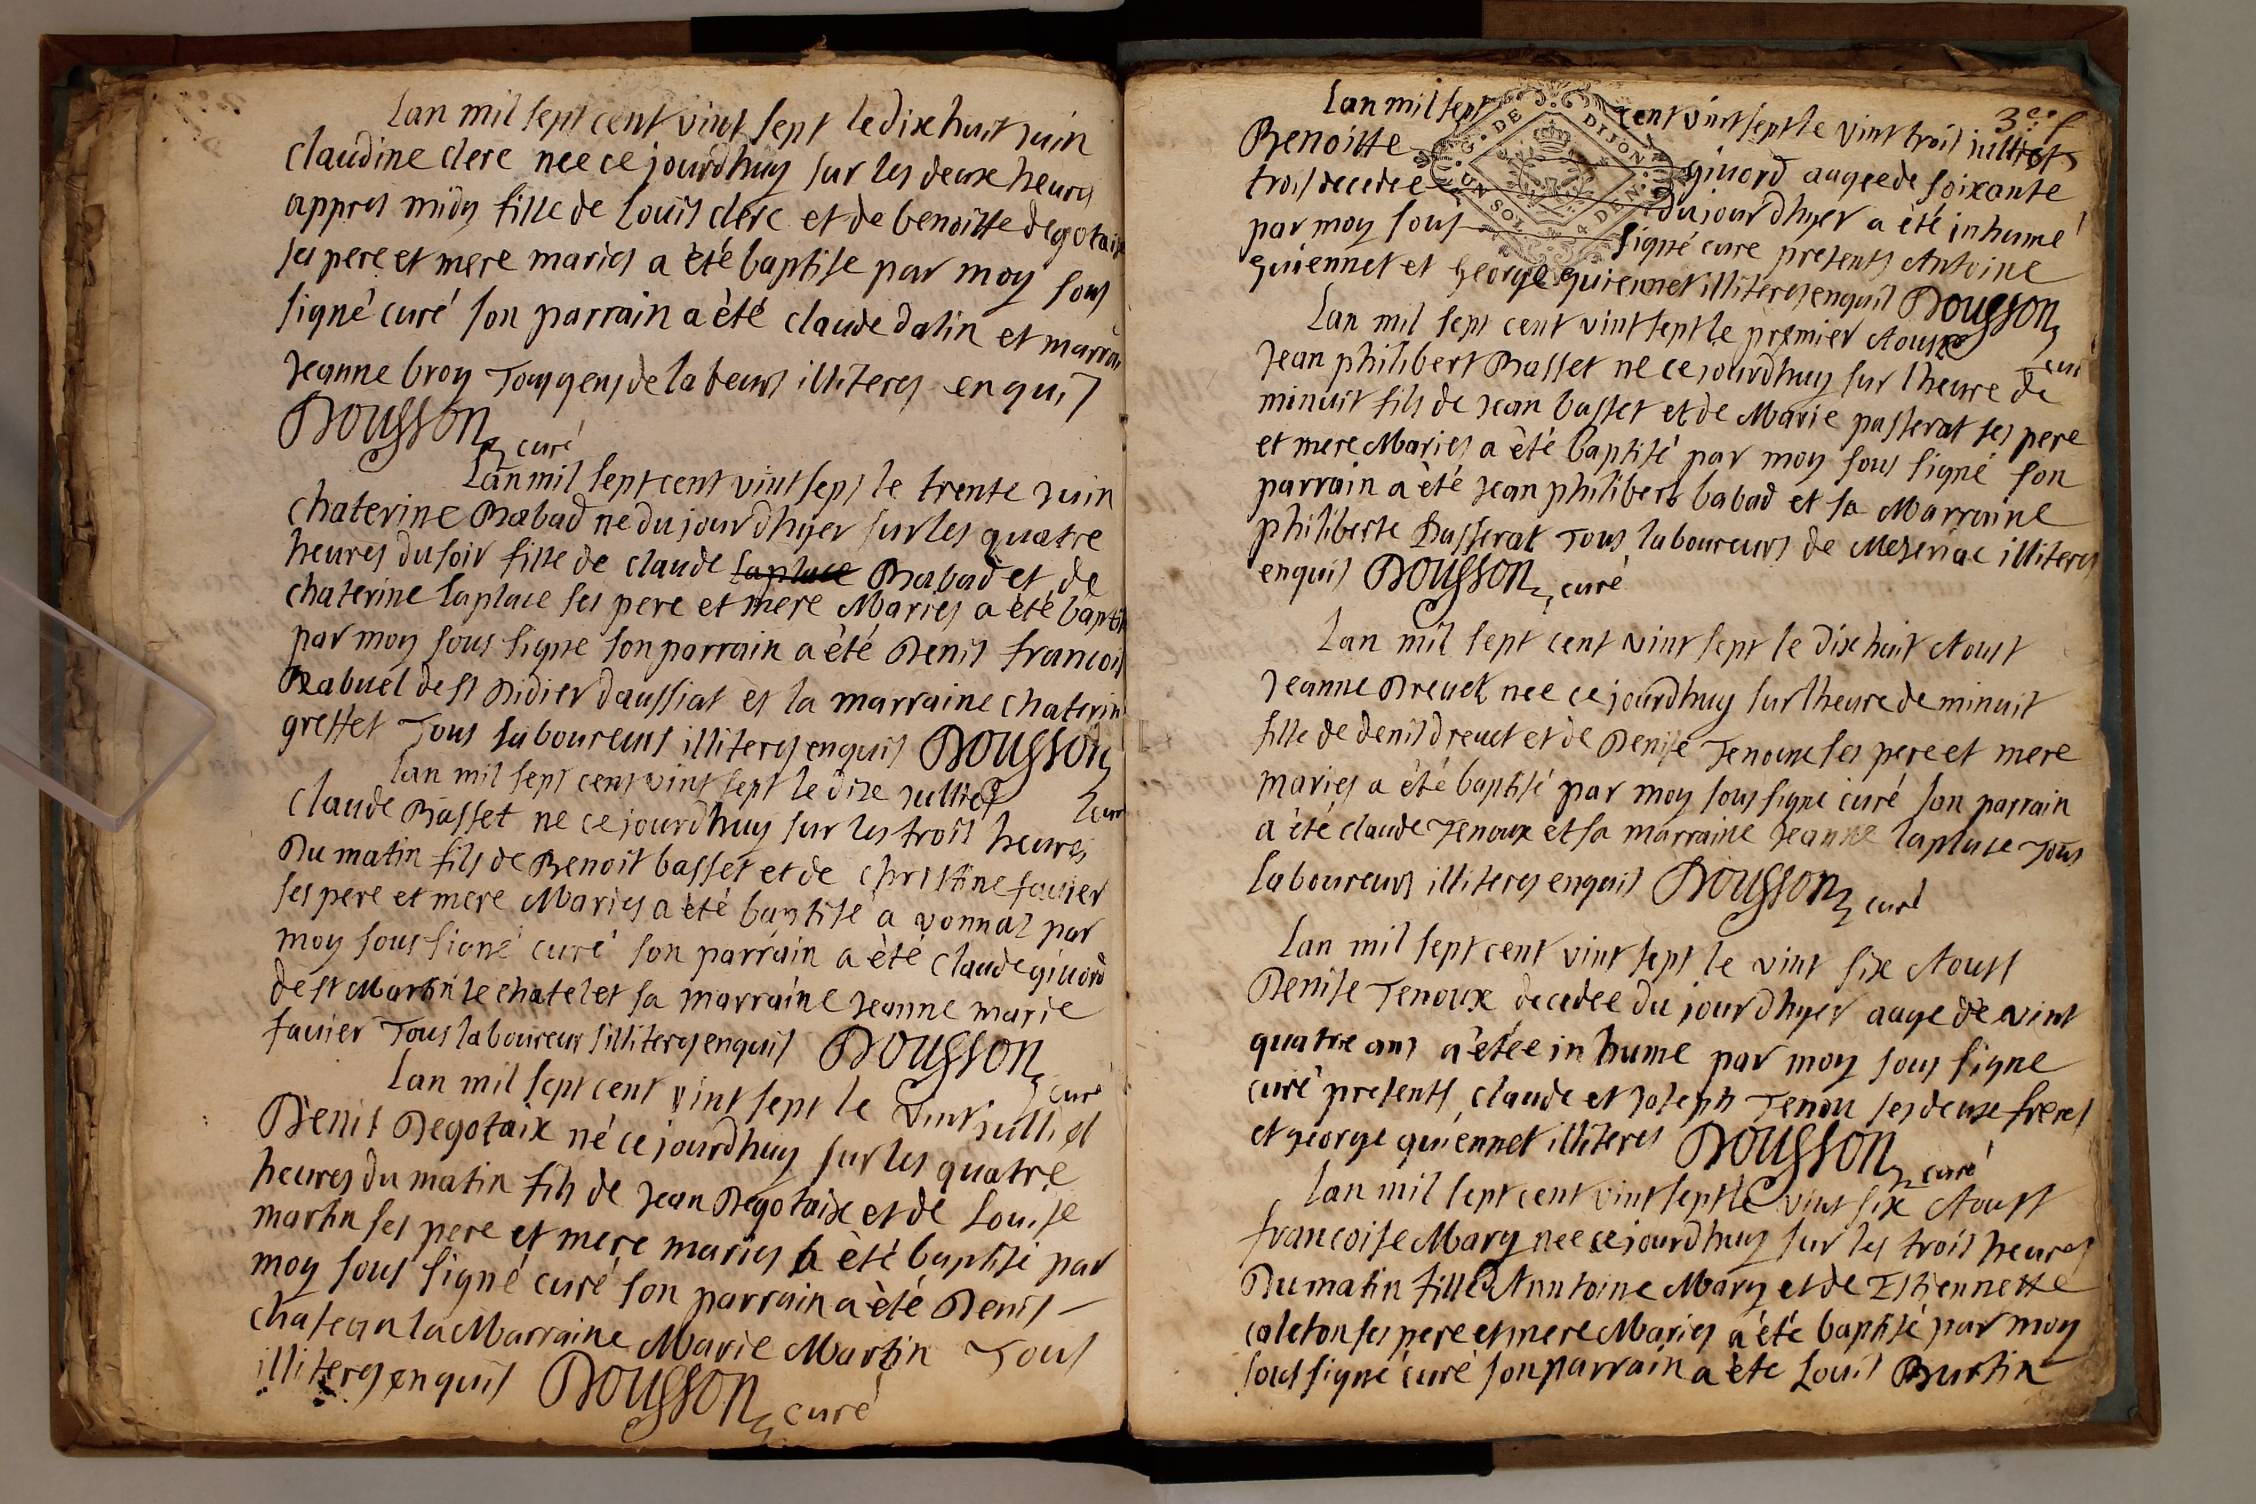 Lan mil sept cent vint sept le dix huit juin
claudine clerc nee ce jourdhuy sur les deux heures
appres midy fille de Louis clerc et de benoitte degotaix
ses pere et mere maries a été baptise par moy sous
signé curé son parrain a été claude datin et marrai
Jeanne broy Tous gens de labeurs illiteres enquis
Dousson curé
Lan mil sept cent vint sept le trente juin
chaterine Babad ne du jour dhyer sur les quatre
heures du soir fille de claude laplace Babad et de
chaterine laplace ses pere et mere Maries a été bapti
par moy sous signe son parrain a été Denis francois
Rabuel de st Didier daussiat et la marraine chaterin
greffet Tous laboureurs illiteres enquis Dousson
cur
lan mil sept cent vint sept le dix julliet
claude Basset ne ce jourdhuy sur les trois heures
Du matin fils de Benoit basset et de christine favier
ses pere et mere Maries a été baptisé a vonnas par
moy sous signé curé son parrain a été claude givord
de st Martin le chatel et sa marraine Jeanne marie
favier Tous laboureurs illiteres enquis Dousson curé
Lan mil sept cent vint sept le vint julliet
Denis Degotaix né ce jourdhuy sur les quatre
heures du matin fils de Jean Degotaix et de Louise
martin ses pere et mere maries a été baptisé par
moy sous signé curé son parrain a été Denis
la Marraine Marie Martin Tous
illiteres enquis Dousson curé
3e f
Lan mil sept cent vint sept le vint trois julliet
Benoitte givord augee de soixante
trois decedee du jour dhyer a été inhumé
par moy sous signé cure presents Antoine
guiennet et George guiennet illiteres enquis Dousson
curé
G. DE DIJON
UN SOL 4 DEN.
Lan mil sept cent vint sept le premier Aoust
Jean philibert Basset ne ce jourdhuy sur lheure de
minuit fils de Jean basset et de Marie passerat ses pere
et mere Maries a été baptisé par moy sous signé son
parrain a été Jean philibert babad et sa Marraine
philiberte Passerat Tous laboureurs de Meseriac illiteres
enquis Dousson curé
Lan mil sept cent vint sept le dix huit Aoust
Jeanne Drevet nee ce jourdhuy sur lheure de minuit
fille de denis drevet et de Denise Tenoux ses pere et mere
maries a été baptisé par moy sous signe curé son parrain
a été claude Tenoux et sa marraine Jeanne laplace Tous
laboureurs illiteres enquis Dousson curé
Lan mil sept cent vint sept le vint six Aoust
Denise Tenoux decedee du jour dhyer auge de vint
quatre ans a étée inhume par moy sous signe
curé presents claude et Joseph Tenou ses deux freres
et george guiennet illiteres Dousson curé
Lan mil sept cent vint sept le vint six Aoust
francoise Mary nee ce jourdhuy sur les trois heures
Du matin fille dAnntoine Mary et de Estiennette
caleton ses pere et mere Maries a été baptisé par moy
sous signé curé son parrain a été Louis Burtin